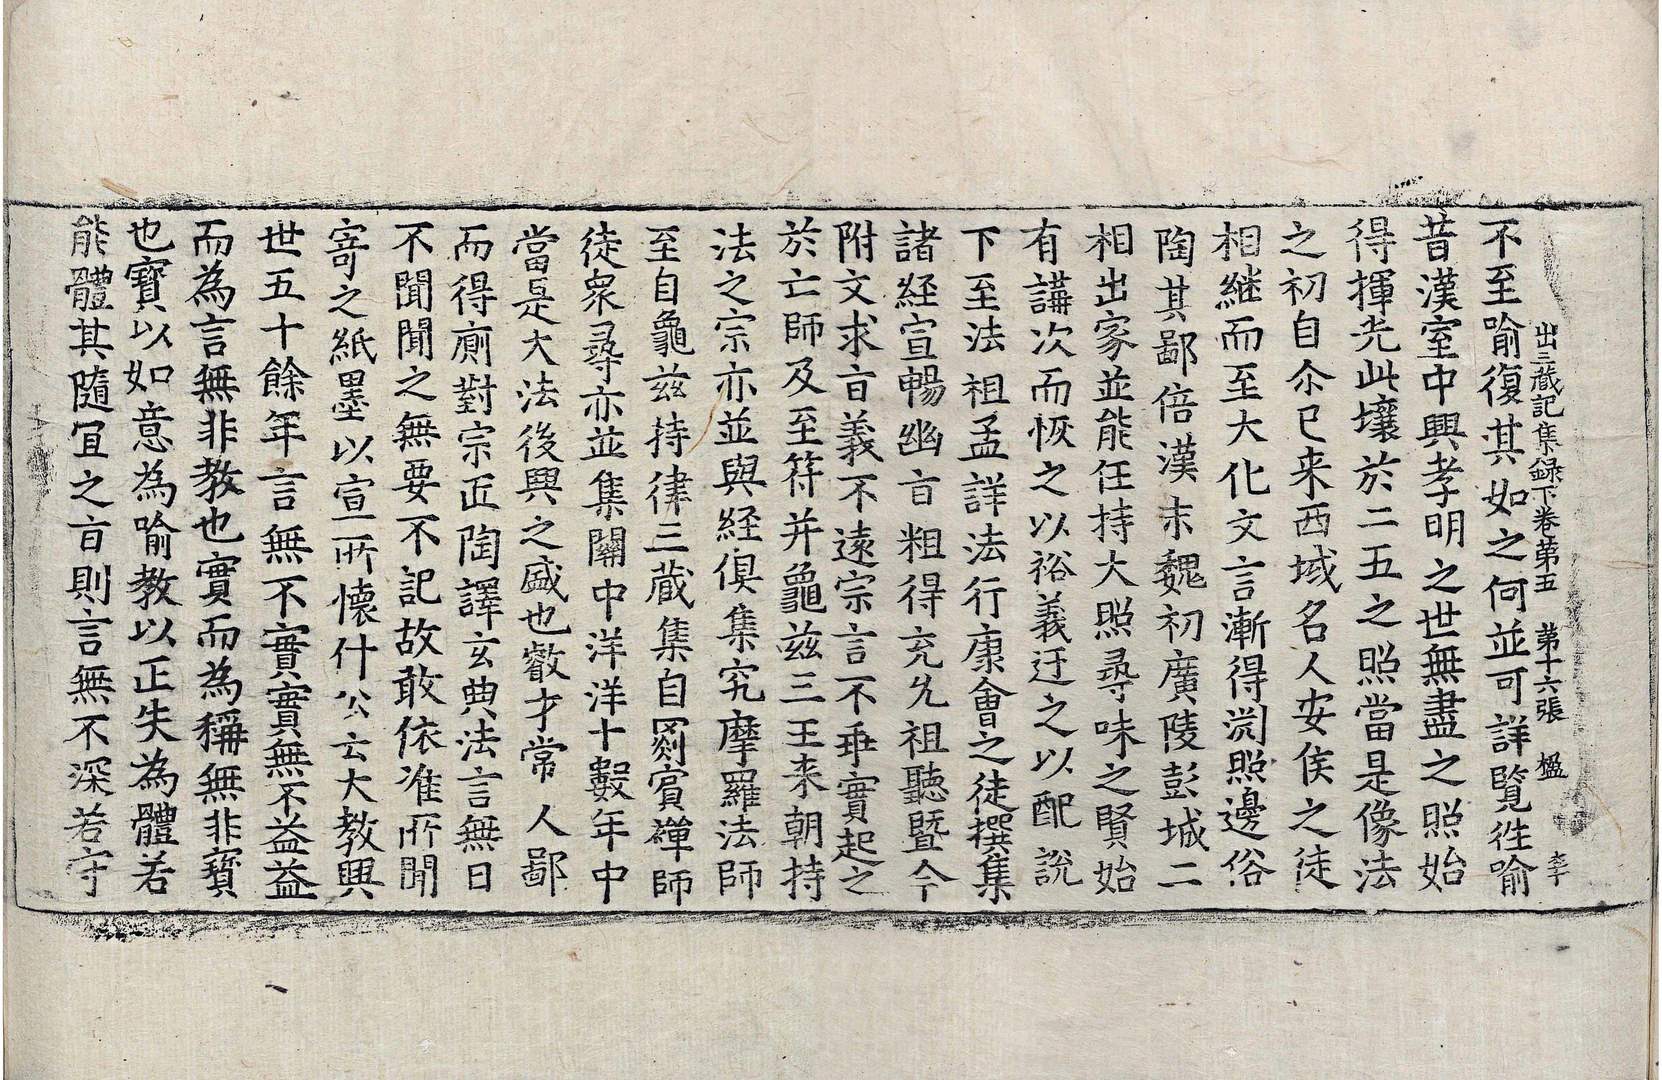 出三藏記集録下卷第五　第十六張　楹　李
不至喻復其如之何並可詳覽往喻
昔漢室中興孝明之世無盡之照始
得揮光此壤於二五之照當是像法
之初自尒已来西域名人安侯之徒
相継而至大化文言漸得淵照邊俗
陶其鄙倍漢末魏初廣陵彭城二
相出家並能任持大照尋味之賢始
有講次而恢之以裕義迂之以配說
下至法祖孟詳法行康會之徒撰集
諸経宣暢幽㫖粗得充允祖聽暨今
附文求㫖義不遠宗言不乖實起之
於亡師及至符并龜玆三王来朝持
法之宗亦並與経俱集究摩羅法師
至自龜玆持律三藏集自罽賓禪師
徒衆尋亦並集關中洋洋十數年中
當是大法後興之盛也叡才常人鄙
而得廁對宗匠陶譯玄典法言無日
不聞聞之無要不記故敢依准所聞
寄之紙墨以宣所懷什公云大教興
世五十餘年言無不實實無不益益
而為言無非教也實而為稱無非寳
也寳以如意為喻教以正失為體若
能體其隨冝之㫖則言無不深若守